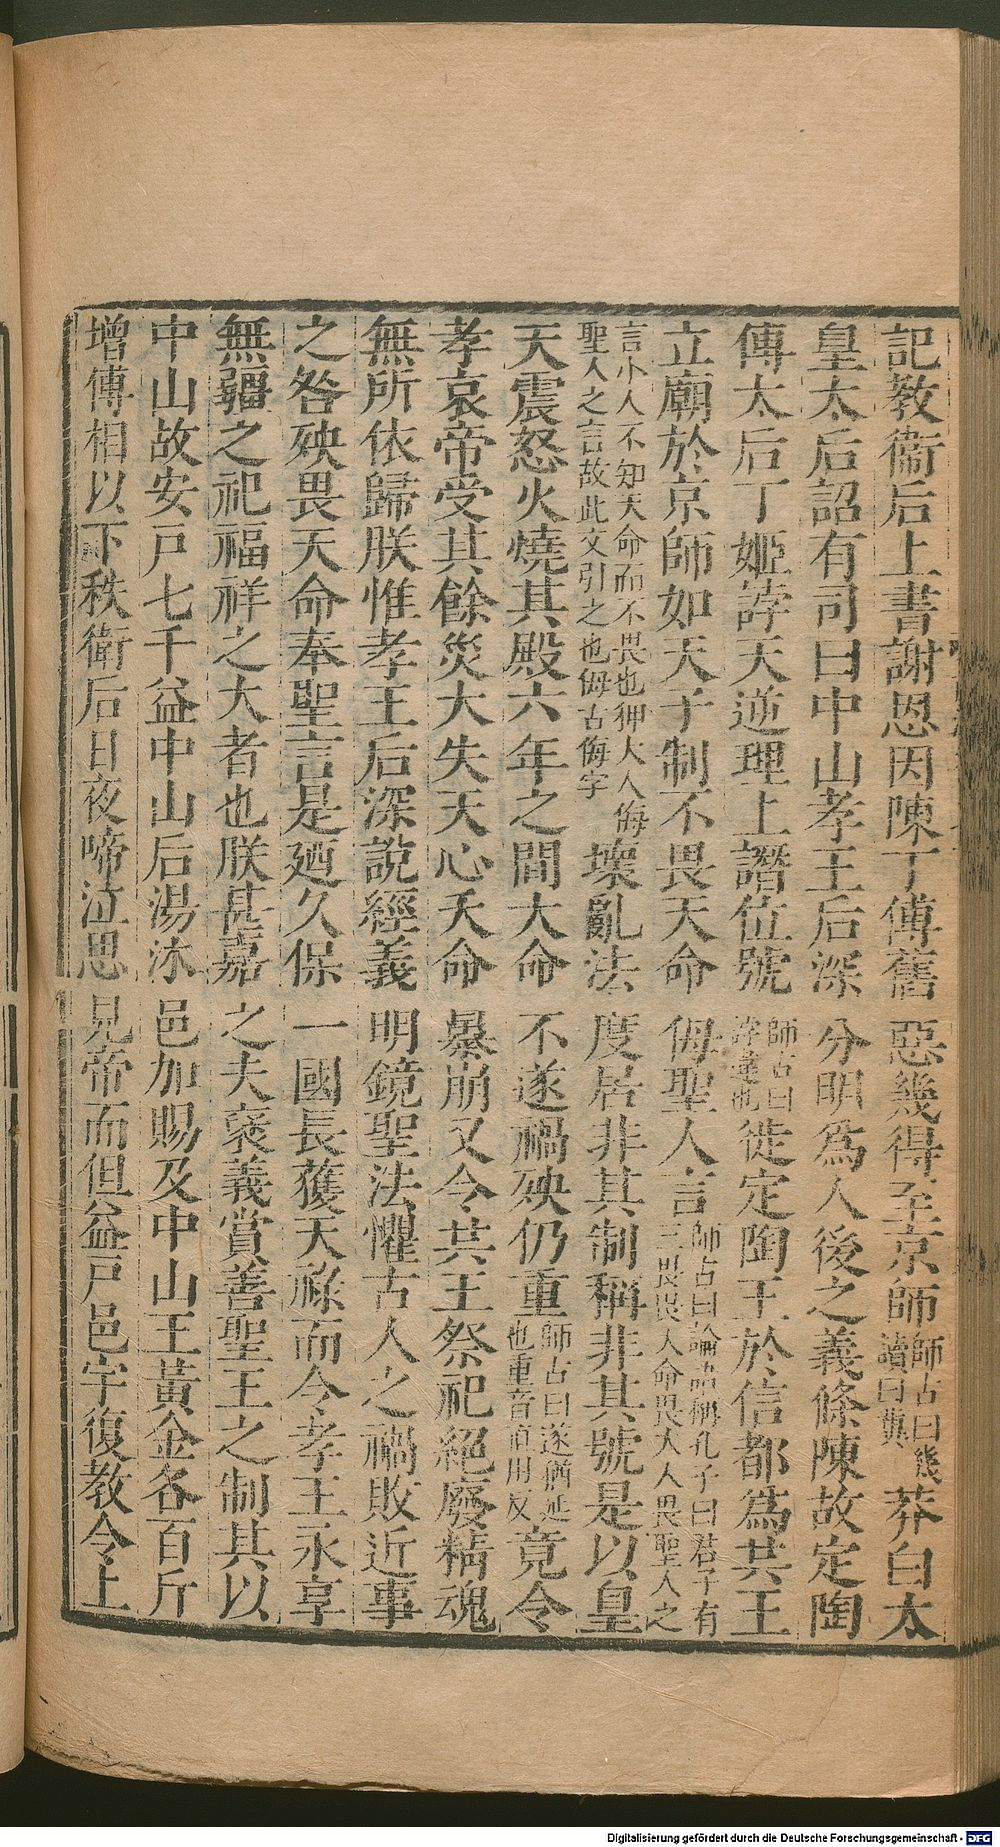 記教衞后上書謝恩因陳丁傅舊惡幾得至京師師古曰幾讀曰冀莽白太
皇太后詔有司曰中山孝王后深分明爲人後之義條陳故定陶
傅太后丁姬誖天逆理上譖位號師古曰誖違也徙定陶王於信都爲共王
立廟於京師如天子制不畏天命㑄聖人言師古曰論語稱孔子曰君子有三畏畏天命畏大人畏聖人之
言小人不知天命而不畏也狎大人侮聖人之言故此文引之也㑄古侮字壞亂法度居非其制稱非其號是以皇
天震怒火燒其殿六年之間大命不遂禍殃仍重師古曰遂猶延也重音直用反竟令
孝哀帝受其餘災大失天心夭命暴崩又令共王祭祀絕廢精魂
無所依歸朕惟孝王后深說經義明鏡聖法懼古人之禍敗近事
之咎殃畏天命奉聖言是廼久保一國長獲天祿而令孝王永享
無疆之祀福祥之大者也朕甚嘉之夫襃義賞善聖王之制其以
中山故安戶七千益中山后湯沐邑加賜及中山王黃金各百斤
增傅相以下秩衞后日夜啼泣思見帝而但益戶邑宇復教令上
Digitalisierung gefördert durch die Deutsche Forschungsgemeinschaft - DFG